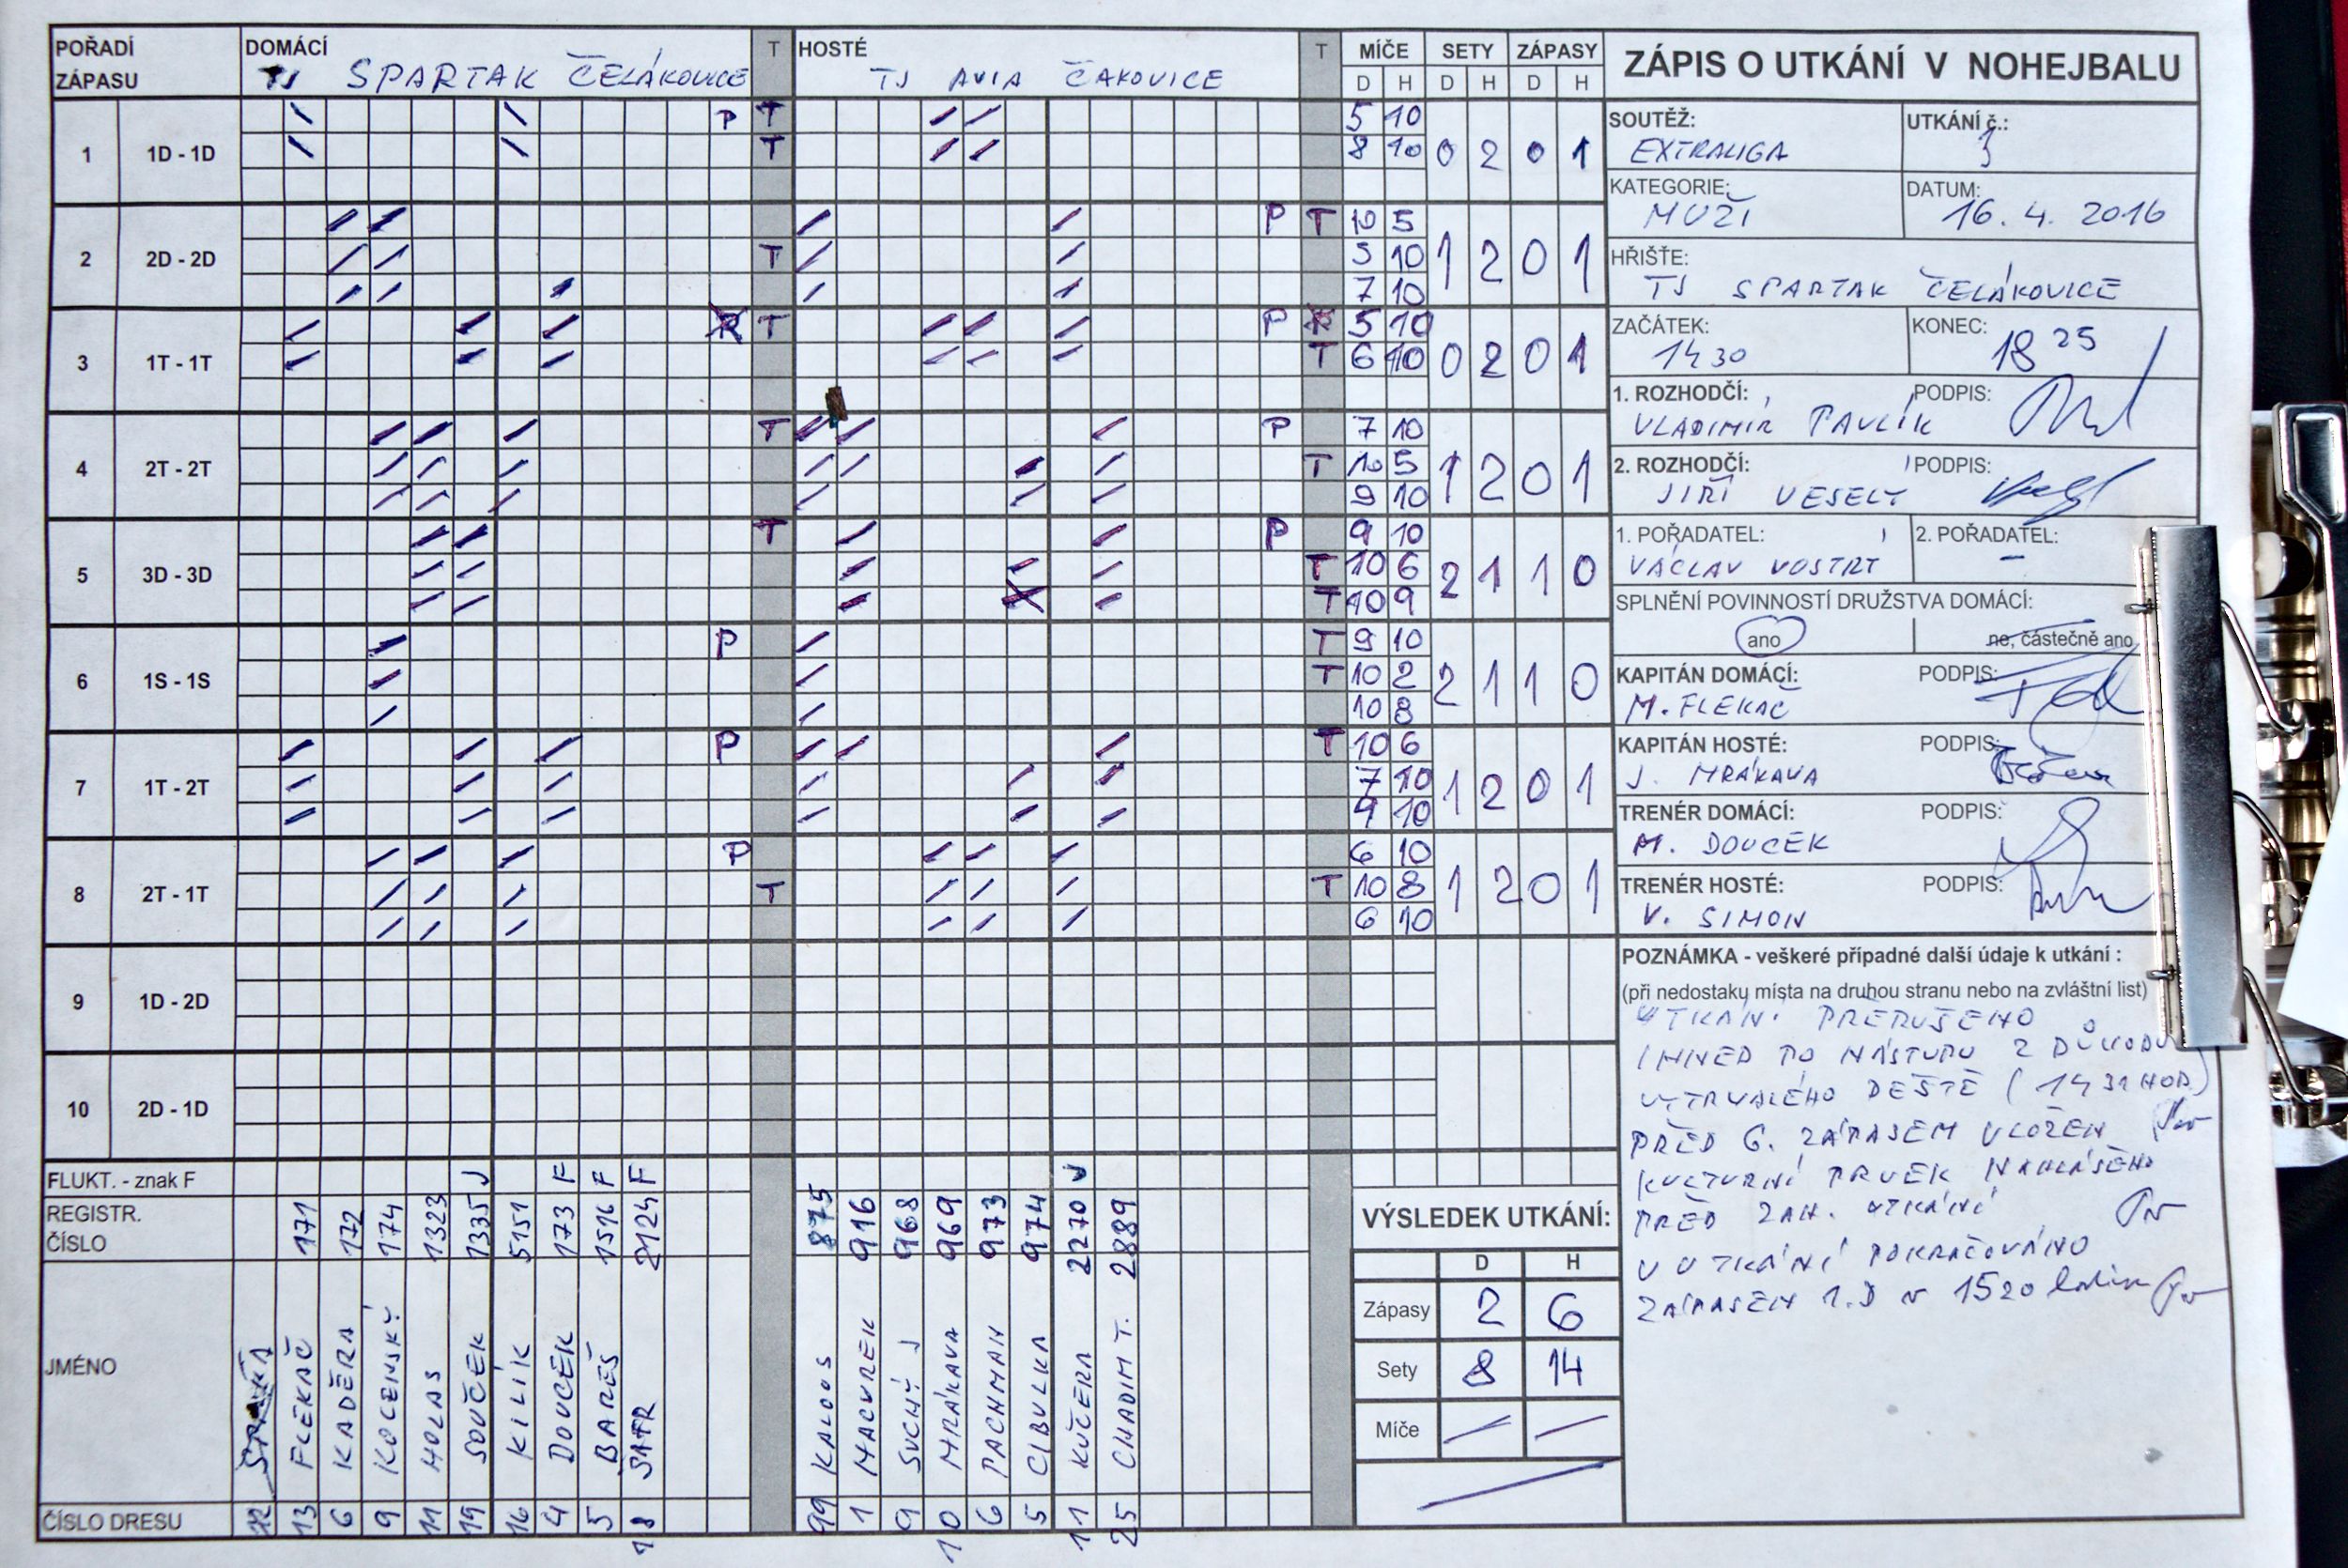 POŘADÍ ZÁPASU DOMÁCÍ T HOSTÉ T MÍČE SETY ZÁPASY
TJ SPARTAK ČELÁKOVICE TJ AVIA ČAKOVICE D H D H D H
1 1D - 1D P T 5 10
T 8 10 0 2 0 1
2 2D - 2D P T 10 5
T 5 10 1 2 0 1
7 10
3 1T - 1T T P 5 10
T 6 10 0 2 0 1
4 2T - 2T T P 7 10
T 10 5 1 2 0 1
9 10
5 3D - 3D T P 9 10
T 10 6 2 1 1 0
T 10 9
6 1S - 1S P T 9 10
T 10 2 2 1 1 0
10 8
7 1T - 2T P T 10 6
7 10 1 2 0 1
9 10
8 2T - 1T P 6 10
T T 10 8 1 2 0 1
6 10
9 1D - 2D
10 2D - 1D
FLUKT. - znak F J F F F J
REGISTR. ČÍSLO 171 172 174 1323 1335 5151 173 1516 2124 875 916 968 969 973 974 2270 2889
JMÉNO FLEKAČ KADĚRA KOCENSKÝ HOLAS SOUČEK KILÍK DOUCEK BAREŠ ŠATR KALOUS MACUREK SUCHÝ J MRÁKAVA PACHMAN CIBULKA KUČERA CHADIM T.
ČÍSLO DRESU 12 13 6 9 11 19 16 4 5 18 99 1 9 10 6 5 11 25
VÝSLEDEK UTKÁNÍ:
D H
Zápasy 2 6
Sety 8 14
Míče
ZÁPIS O UTKÁNÍ V NOHEJBALU
SOUTĚŽ: UTKÁNÍ č.:
EXTRALIGA 3
KATEGORIE: DATUM:
MUŽI 16. 4. 2016
HŘIŠTE:
TJ SPARTAK ČELÁKOVICE
ZAČÁTEK: KONEC:
14 30 18 25
1. ROZHODČÍ: PODPIS:
VLADIMÍR PAVLÍK
2. ROZHODČÍ: PODPIS:
JIŘÍ VESELÝ
1. POŘADATEL: 2. POŘADATEL:
VÁCLAV VOSTRÝ -
SPLNĚNÍ POVINNOSTÍ DRUŽSTVA DOMÁCÍ:
ano ne, částečně ano
KAPITÁN DOMÁCÍ: PODPIS:
M. FLEKAČ
KAPITÁN HOSTÉ: PODPIS:
J. MRÁKAVA
TRENÉR DOMÁCÍ: PODPIS:
M. DOUCEK
TRENÉR HOSTÉ: PODPIS:
V. SIMON
POZNÁMKA - veškeré případné další údaje k utkání :
(při nedostaku místa na druhou stranu nebo na zvláštní list)
UTKÁNÍ PŘERUŠENO
IHNED PO NÁSTUPU Z DŮVODU
VYTRVALÉHO DEŠTĚ (14 31 HOD)
PŘED 6. ZÁPASEM VLOŽEN
KULTURNÍ PRVEK NAHLÁŠENO
PŘED ZAH. UTKÁNÍ
V UTKÁNÍ POKRAČOVÁNO
ZÁPASEM 1.D v 15 20 hodin